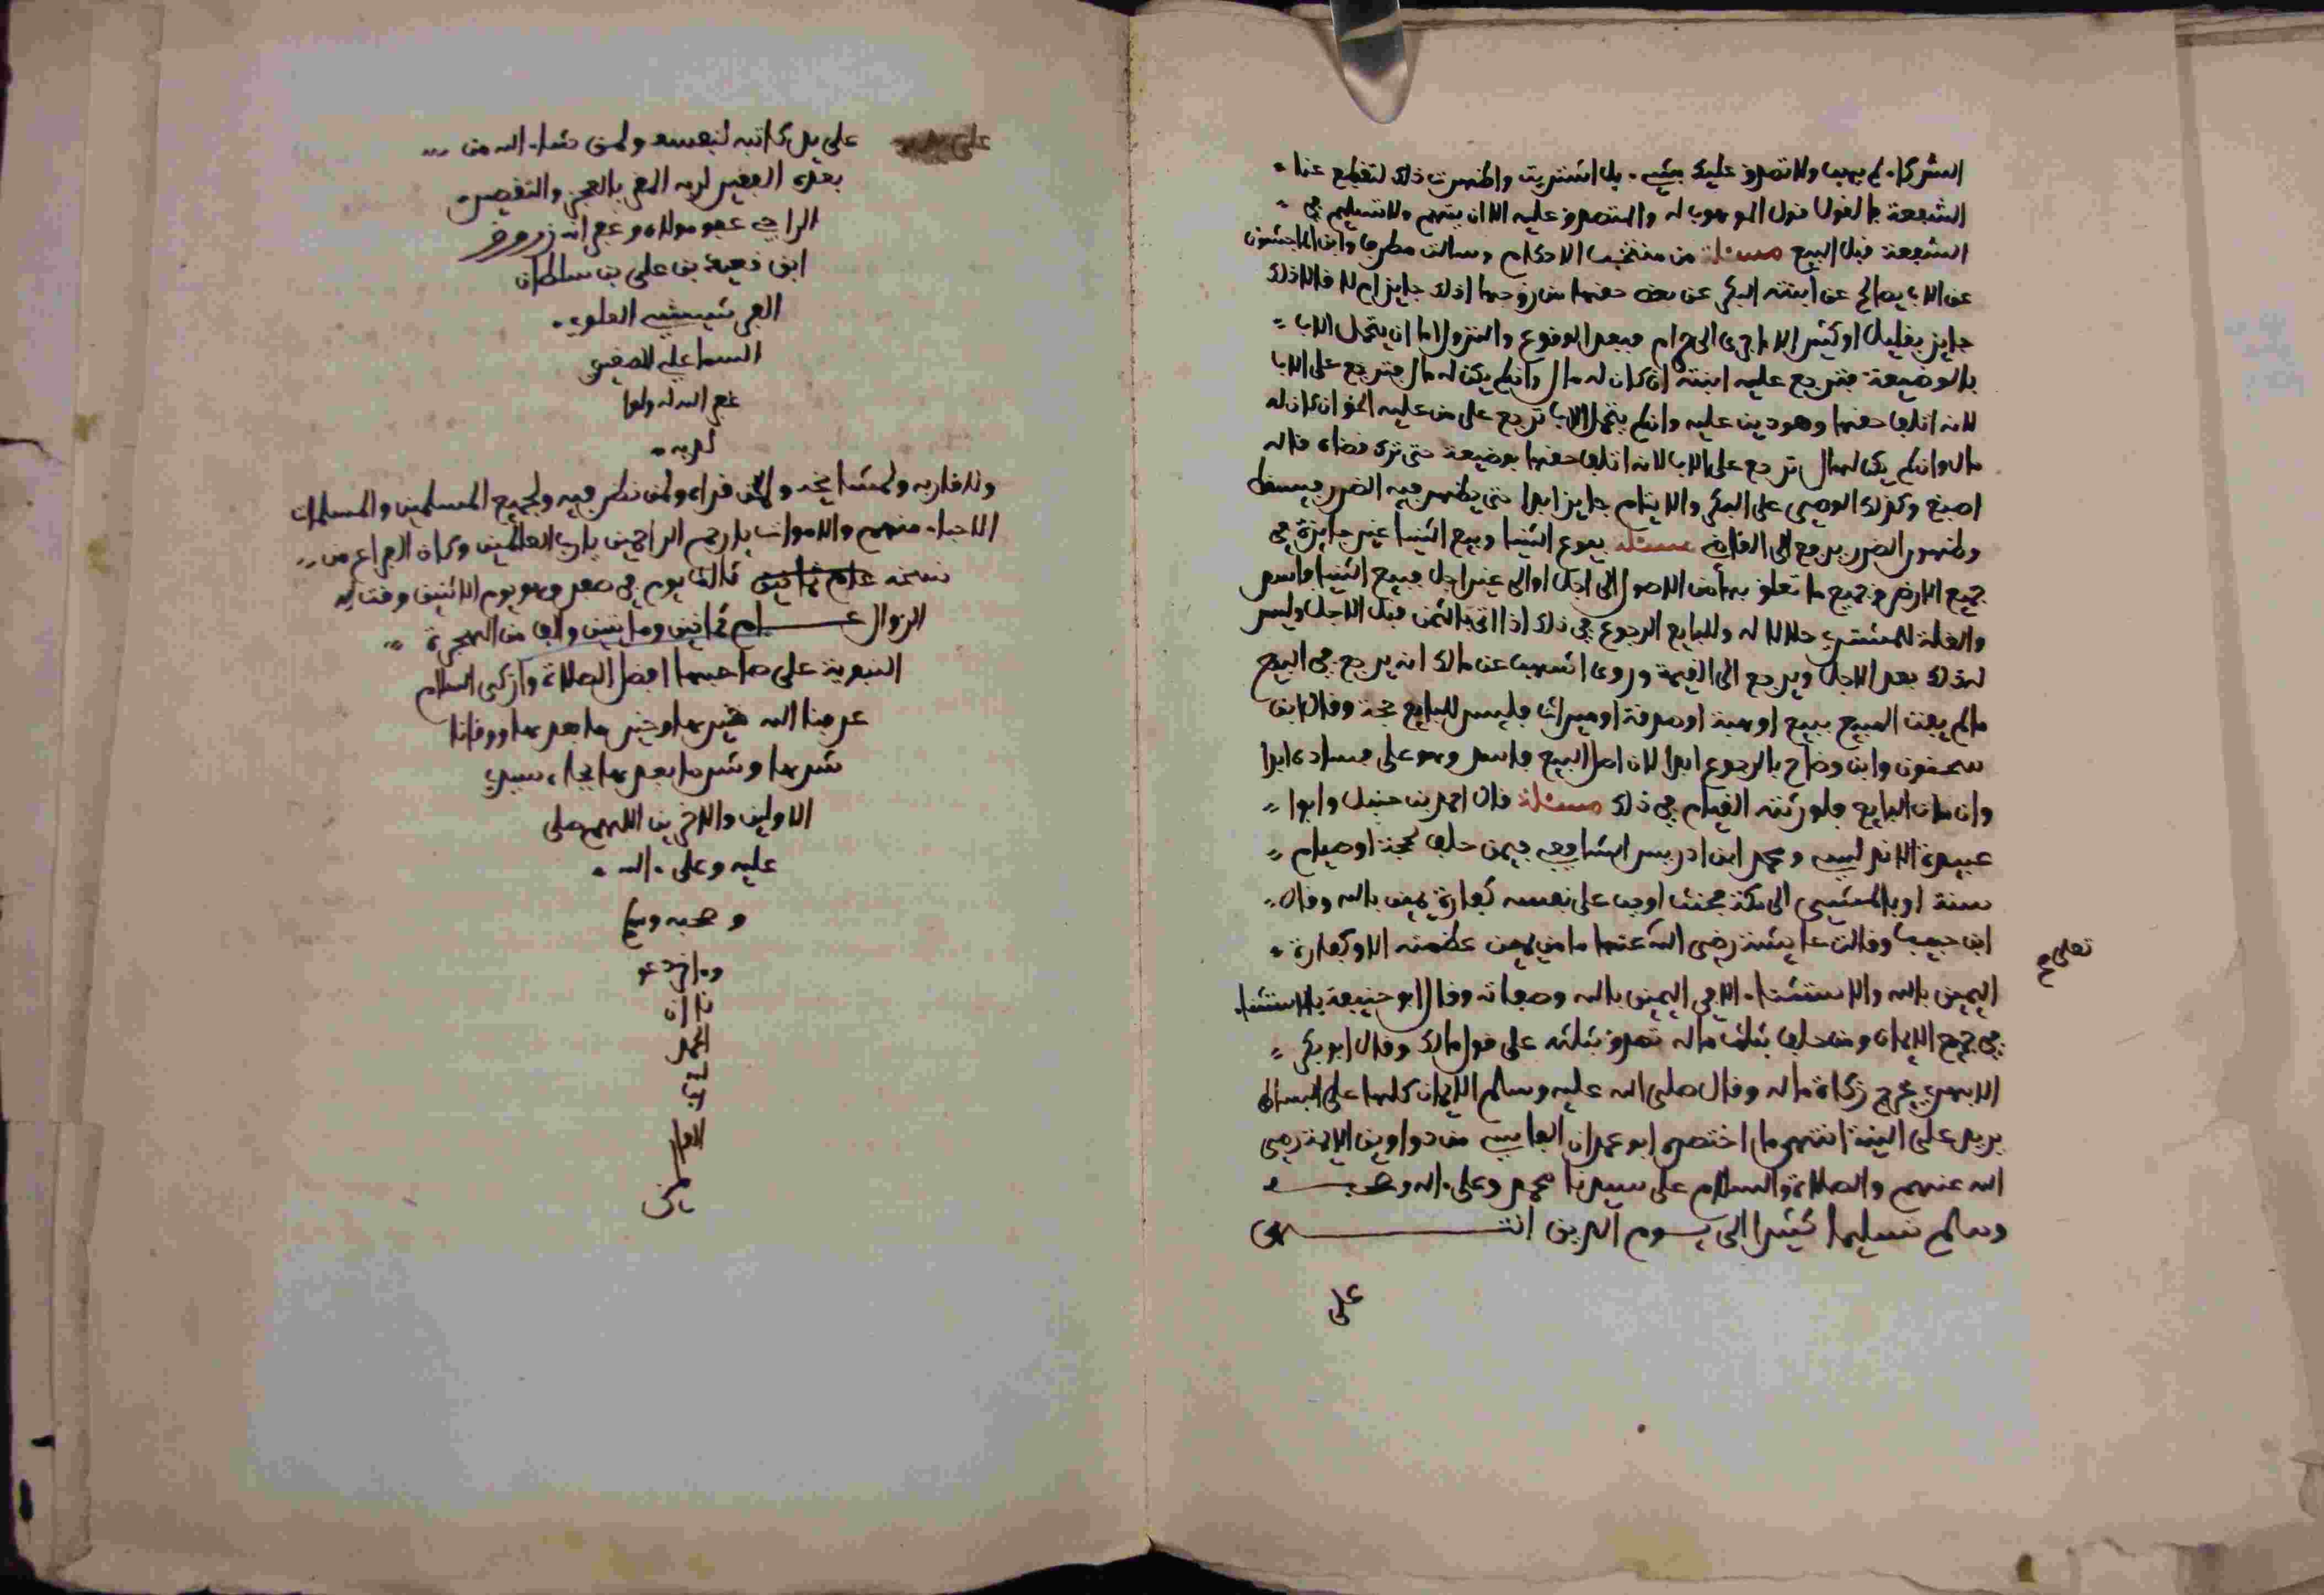 الشركاء لم يهب ولا تصدق عليك بشيء بل اشتريت واظهرت ذلك لتقطع عنا
الشفعة فالقول قول الموهوب له والمتصدق عليه الا ان يتهم ولا تسليم في
الشفعة قبل البيع مسئلة من منتخب الاحكام وسالت مطرفا وابن الماجشون
عن الاب يصالح عن ابنته البكر عن بعض حقها من زوجها اذلك جايز ام لا قالا ذلك
جايز بقليل او كثير الا ما جرى الى حرام فبعد الوقوع والنزول اما ان يتحمل الاب
بالوضيعة فترجع عليه ابنته ان كان له مال وان لم يكن له مال فترجع على الاب
لانه اتلف حقها وهو دين عليه وان لم يتحمل الاب ترجع على من عليه الحق ان كان له
مال وان لم يكن له مال ترجع على الاب لانه اتلف حقها بوضيعة حتى ترى قضاه قاله
اصبغ وكذلك الوصي على البكر والايتام جايز ابدا حتى يظهر فيه الضرر فيسقط
وظهور الضرر يرجع الى القاضي مسئلة بيوع الثنيا وبيع الثنيا غير جايزة في
جميع الارض وجميع ما تعلق بها من الاصول الى اجل او الى غير اجل فبيع الثنيا فاسد
والغلة للمشتري حلالا له وللبايع الرجوع في ذلك اذا اتى بالثمن قبل الاجل وليس
له ذلك بعد الاجل ويرجع الى القيمة وروى اشهب عن مالك انه يرجع في البيع
ما لم يفت المبيع ببيع او هبة او صدقة او ميراث فليس للبايع حجة وقال ابن
سحنون وابن وضاح بالرجوع ابدا لان اصل البيع فاسد وهو على فساده ابدا
وان مات البايع فلورثته القيام في ذلك مسئلة قال احمد بن حنبل وابوا
عبيدة الاندلسي ومحمد ابن ادريس الشافعي فيمن حلف بحجة او صيام
سنة او بالمشي الى مكة فحنث اوجب على نفسه كفارة يمين بالله وقال
ابن حبيب وقالت عايشة رضي الله عنها ما من يمين عظمته الا وكفارة
تعلى
اليمين بالله والاستثناء الا في اليمين بالله وصفاته وقال ابو حنيفة بالاستثناء
في جميع الايمان ومن حلف بثلث ماله تصدق بثلثه على قول مالك وقال ابو بكر
الابهري يخرج زكاة ماله وقال صلى الله عليه وسلم الايمان كلها على البساط
يريد على النية انتهى ما اختصره ابو عمران الفاسي من دواوين الايمة رضي
الله عنهم والصلاة والسلام على سيدنا محمد وعلى ءاله وصحبه
وسلم تسليما كثيرا الى يوم الدين انتهى
على
على يد كاتبه لنفسه ولمن شاء الله من
بعده الفقير لربه المقر بالعجز والتقصير
الراجي عفو مولاه وغفرانه زروق
ابن نعيمة بن علي بن سلطان
الغر شيشي العلوي
السماعلي الصغير
غفر الله له ولوا
لديه
ولاقاربه ولمشايخه ولمن قراه ولمن نظر فيه ولجميع المسلمين والمسلمات
الاحياء منهم والاموات يا ارحم الراحمين يا رب العالمين وكان الفراغ من
نسخه ثالث يوم في صفر وهو يوم الاثنين وقت
الزوال عام ثمانين ومايتين والف من الهجرة
النبوية على صاحبها افضل الصلاة وازكى السلام
عرفنا الله خيرها وخير ما بعدها ووقانا
شرها وشر ما بعدها بجاه سيدي
الاولين والاخرين اللهم صل
عليه وعلى ءاله
وصحبه وسلم
وءاخر دعو
نا ان
الحمد
لله رب
العا
لمين